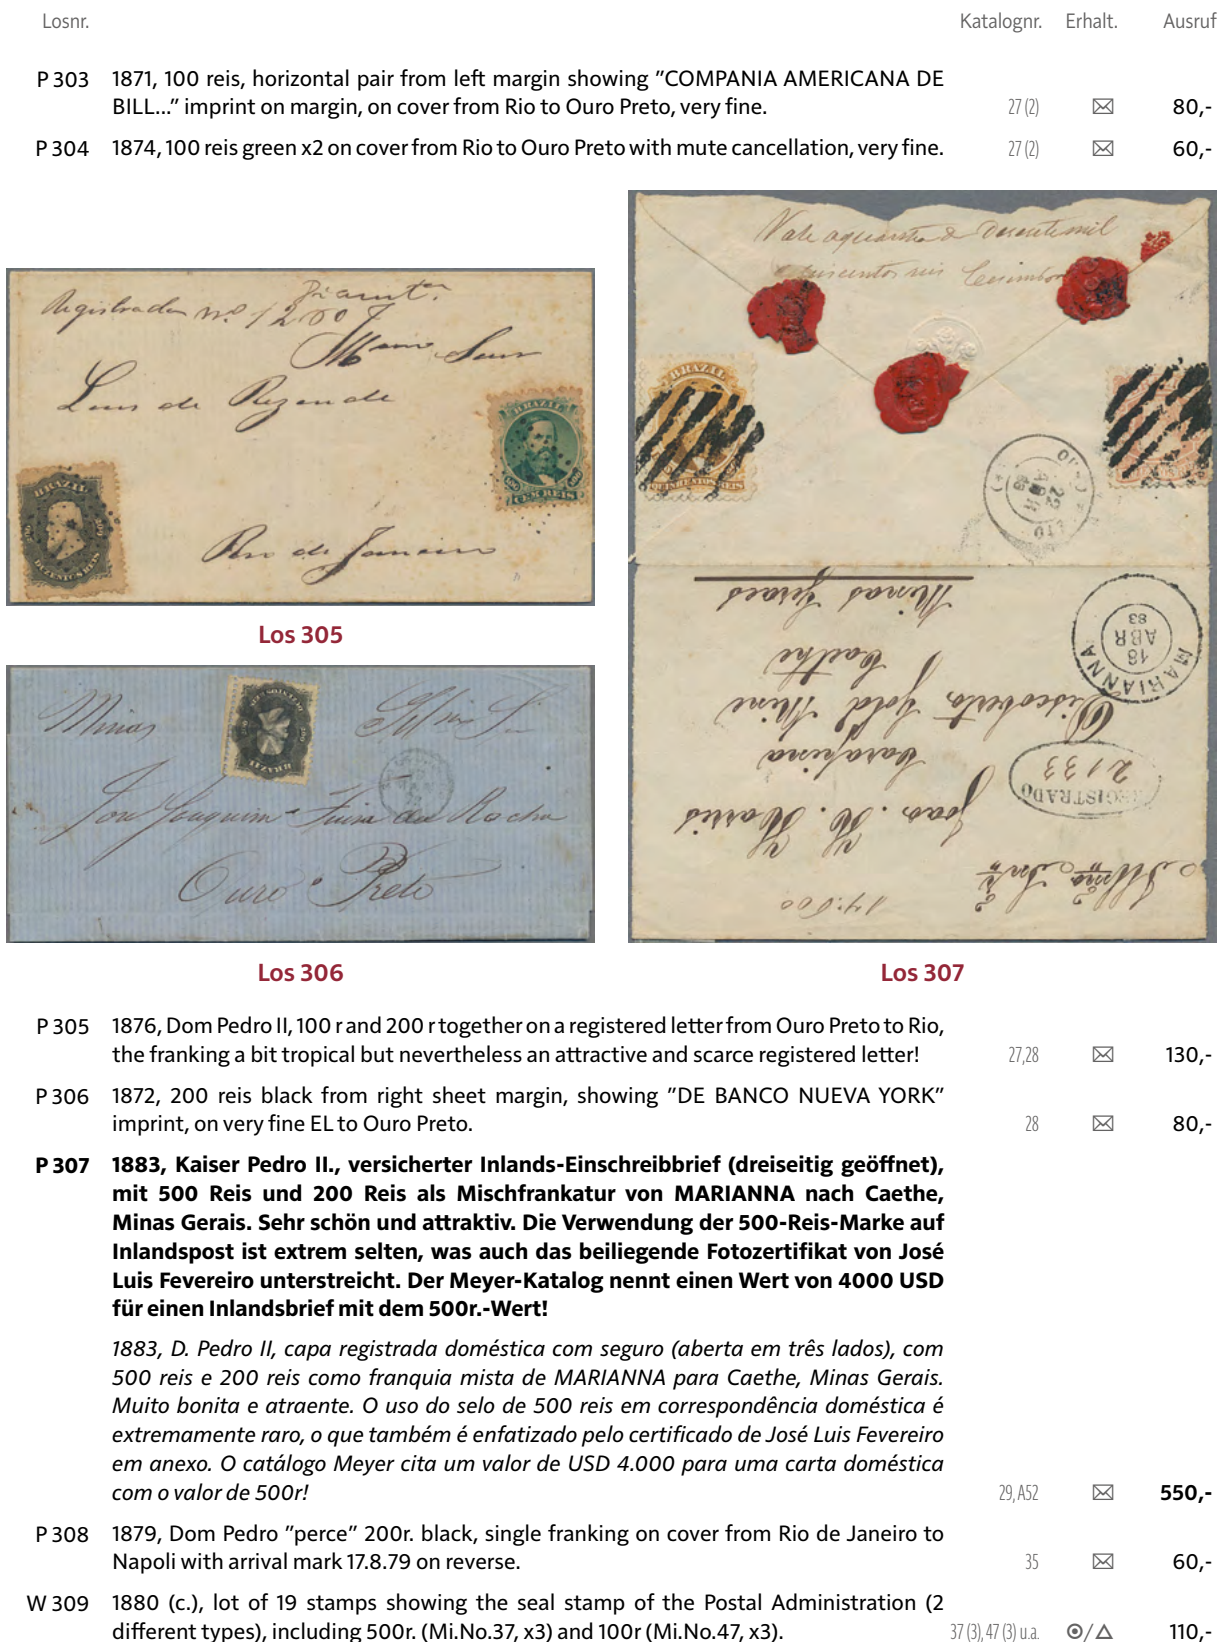 Losnr. Katalognr. Erhalt. Ausruf
P 303 1871, 100 reis, horizontal pair from left margin showing "COMPANIA AMERICANA DE
BILL..." imprint on margin, on cover from Rio to Ouro Preto, very fine. 27 (2) 80,-
P 304 1874, 100 reis green x2 on cover from Rio to Ouro Preto with mute cancellation, very fine. 27 (2) 60,-
Registrada nº 1260
Luis de Rezende
Rio de Janeiro
BRAZIL
DUZENTOS REIS
BRAZIL
CEM REIS
Los 305
Minas
José Joaquim da Rocha
Ouro Preto
BRAZIL
Los 306
BRAZIL
QUINHENTOS REIS
22
MARIANNA
18
ABR
83
Minas Geraes
Caethe
Discoberta Gold Mine
H. Harris
REGISTRADO
2133
Los 307
P 305 1876, Dom Pedro II, 100 r and 200 r together on a registered letter from Ouro Preto to Rio,
the franking a bit tropical but nevertheless an attractive and scarce registered letter! 27,28 130,-
P 306 1872, 200 reis black from right sheet margin, showing "DE BANCO NUEVA YORK"
imprint, on very fine EL to Ouro Preto. 28 80,-
P 307 1883, Kaiser Pedro II., versicherter Inlands-Einschreibbrief (dreiseitig geöffnet),
mit 500 Reis und 200 Reis als Mischfrankatur von MARIANNA nach Caethe,
Minas Gerais. Sehr schön und attraktiv. Die Verwendung der 500-Reis-Marke auf
Inlandspost ist extrem selten, was auch das beiliegende Fotozertifikat von José
Luis Fevereiro unterstreicht. Der Meyer-Katalog nennt einen Wert von 4000 USD
für einen Inlandsbrief mit dem 500r.-Wert!
1883, D. Pedro II, capa registrada doméstica com seguro (aberta em três lados), com
500 reis e 200 reis como franquia mista de MARIANNA para Caethe, Minas Gerais.
Muito bonita e atraente. O uso do selo de 500 reis em correspondência doméstica é
extremamente raro, o que também é enfatizado pelo certificado de José Luis Fevereiro
em anexo. O catálogo Meyer cita um valor de USD 4.000 para uma carta doméstica
com o valor de 500r! 29, A52 550,-
P 308 1879, Dom Pedro "perce" 200r. black, single franking on cover from Rio de Janeiro to
Napoli with arrival mark 17.8.79 on reverse. 35 60,-
W 309 1880 (c.), lot of 19 stamps showing the seal stamp of the Postal Administration (2
different types), including 500r. (Mi.No.37, x3) and 100r (Mi.No.47, x3). 37 (3), 47 (3) u.a. 110,-